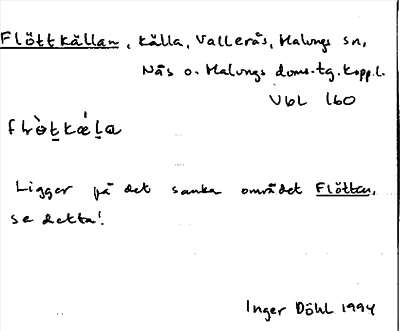 Flöttkällan, källa, Vallerås, Malungs sn,
Nås o. Malungs doms.tg. Kopp.l.
Vbl 160
Ligger på det sanka området Flötten,
se detta!
Inger Döhl 1994